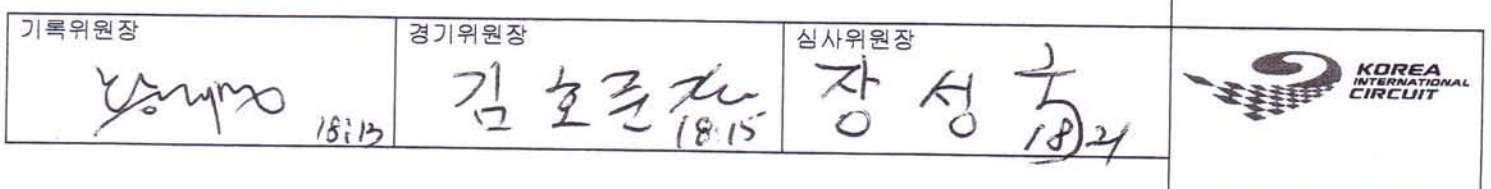 기록위원장
18:13
경기위원장
김호준
18:15
심사위원장
장성국
18:21
KOREA
INTERNATIONAL
CIRCUIT